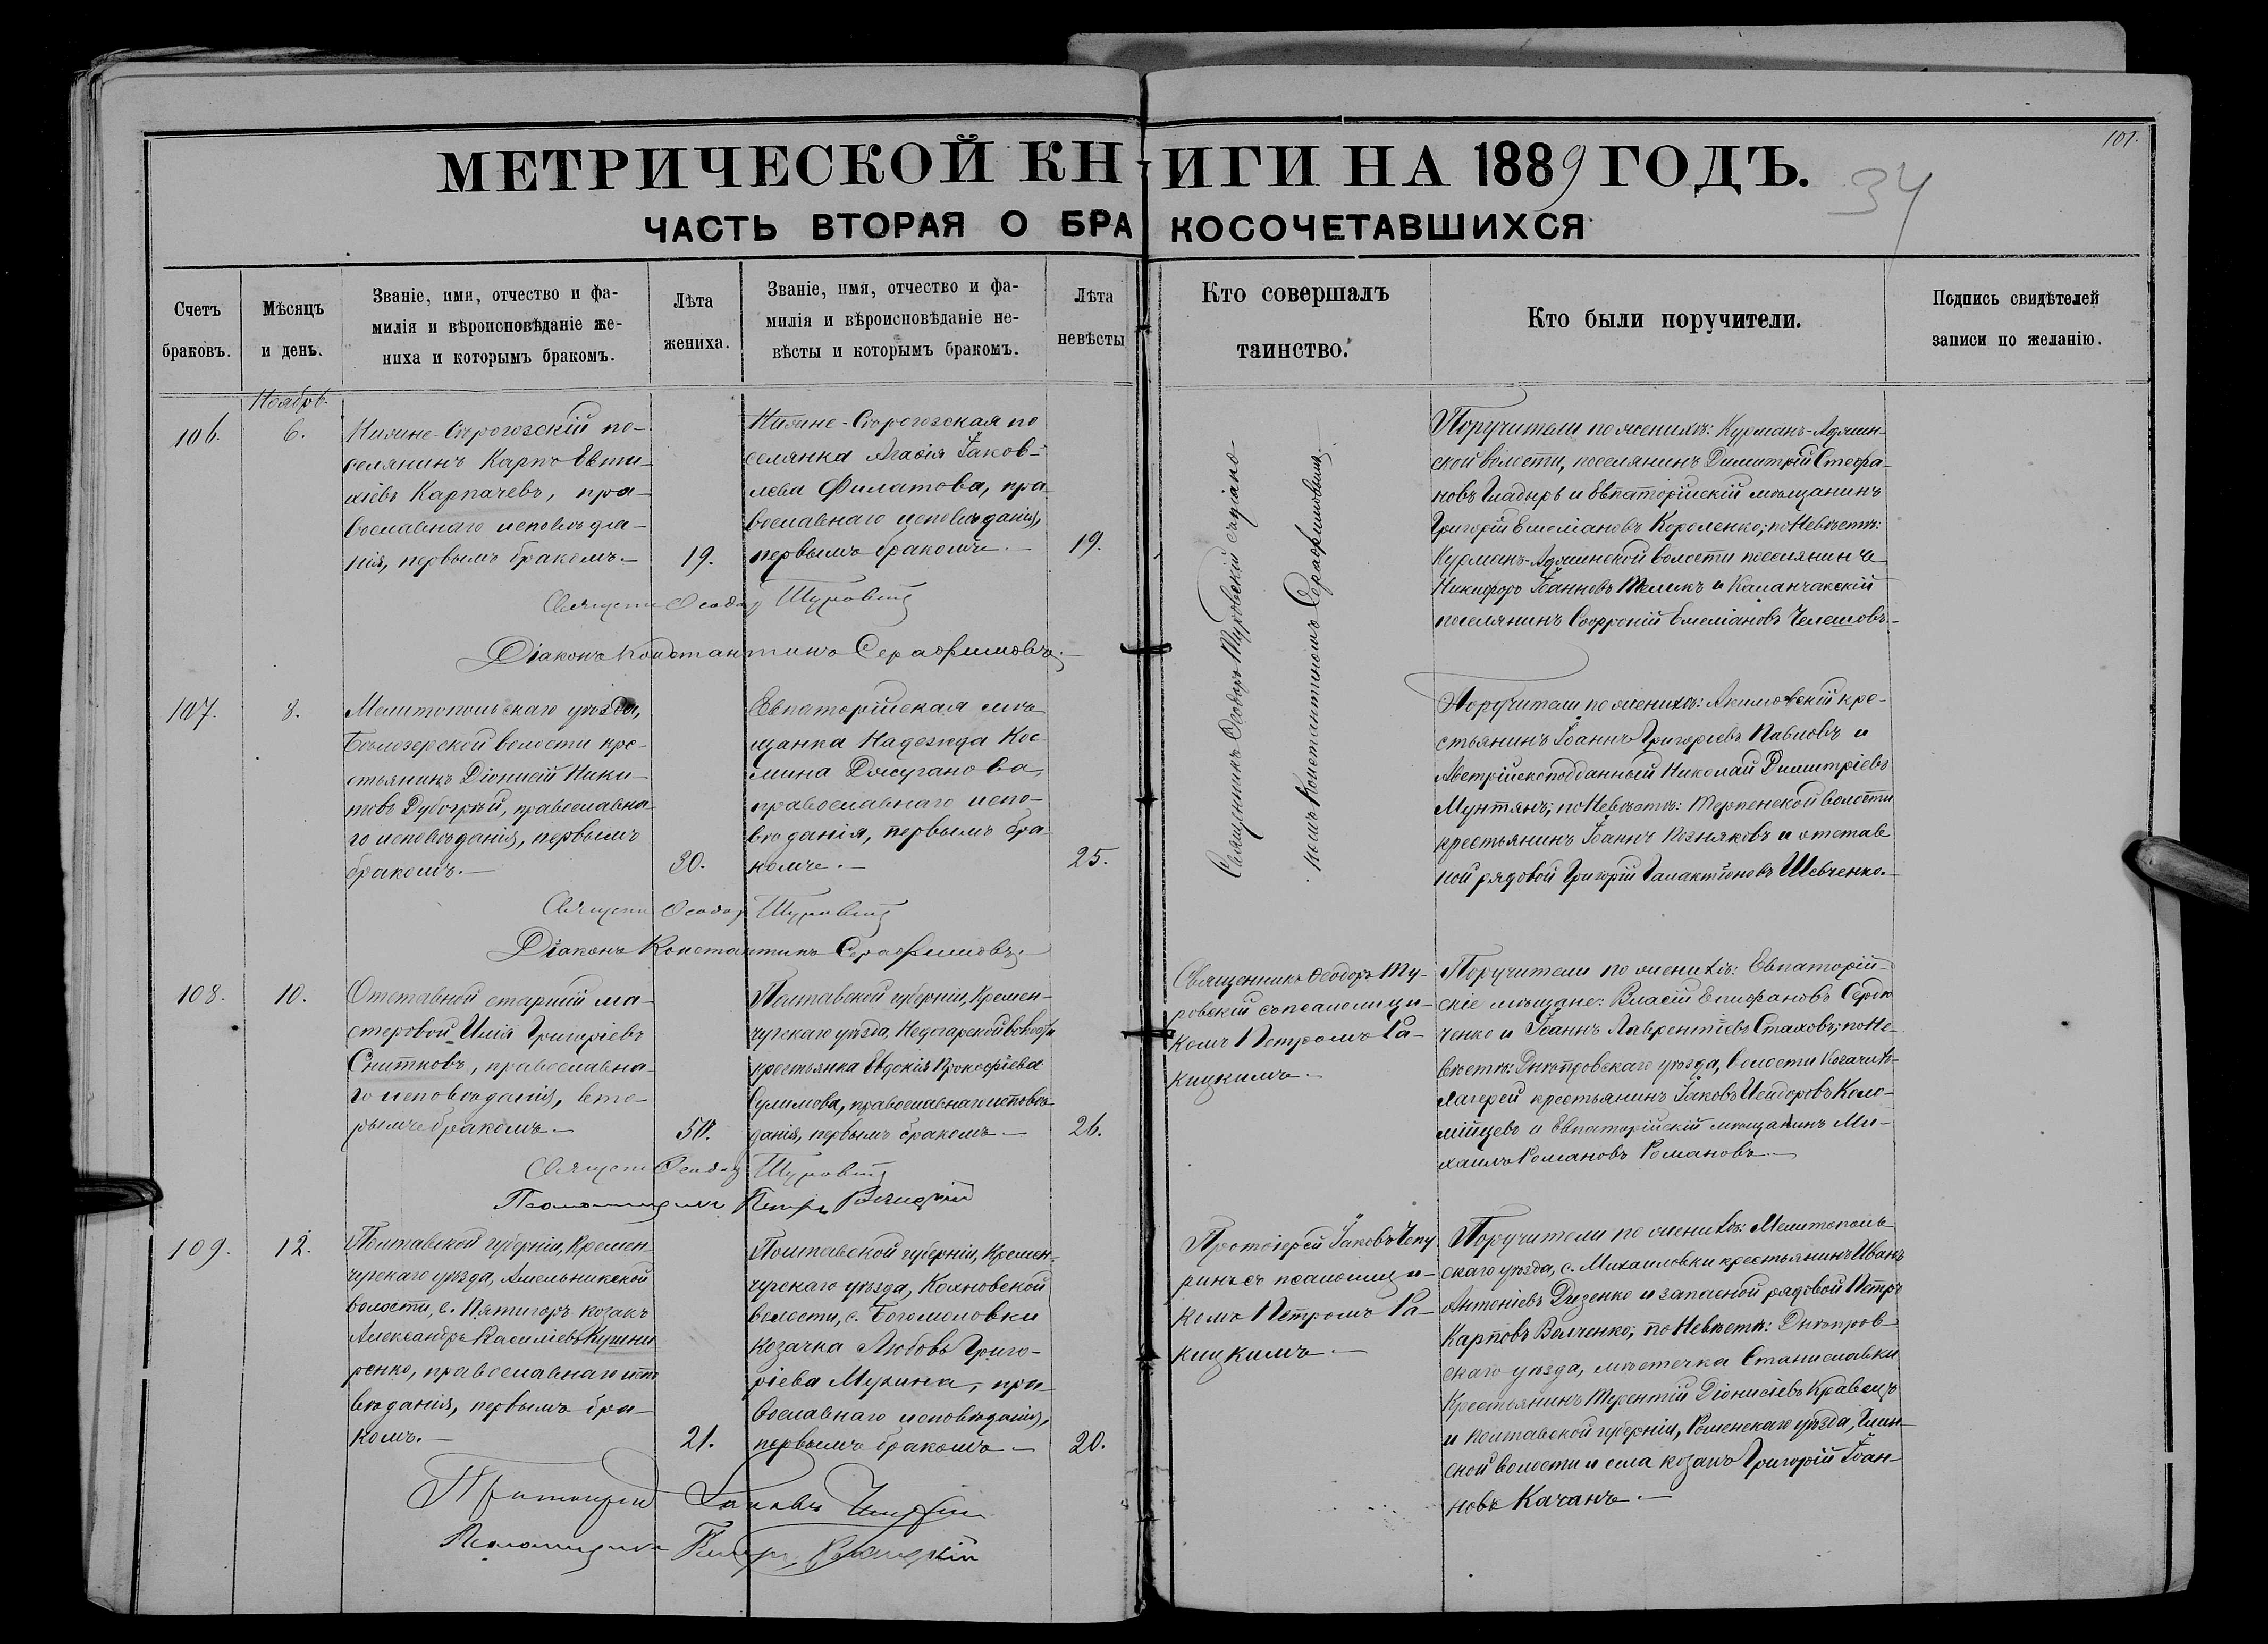 101.
МЕТРИЧЕСКОЙ КНИГИ НА 1889 ГОДЪ.
34
ЧАСТЬ ВТОРАЯ О БРАКОСОЧЕТАВШИХСЯ
Счетъ
браковъ.
Мѣсяцъ
и день.
Званіе, имя, отчество и фа-
милія и вѣроисповѣданіе же-
ниха и которымъ бракомъ.
Лѣта
жениха.
Званіе, имя, отчество и фа-
милія и вѣроисповѣданіе не-
вѣсты и которымъ бракомъ.
Лѣта
невѣсты
Кто совершалъ
таинство.
Кто были поручители.
Подпись свидѣтелей
записи по желанію.
Ноября.
106.
6.
Нижне-Сѣрогозскій по-
селянинъ Карпъ Евти-
хіевъ Карпачевъ, пра-
вославнаго исповѣда-
нія, первымъ бракомъ.
19.
Нижне-Сѣрогозская по
селянка Агафія Іаков-
лева Филатова, пра-
вославнаго исповѣданія,
первымъ бракомъ.
19.
Священникъ Ѳеодоръ Туровскій съ діако-
номъ Константиномъ Серафимовымъ.
Поручители по женихѣ: Курманъ-Аджин-
ской волости, поселянинъ Димитрій Стефа-
новъ Гладырь и Евпаторійскій мѣщанинъ
Григорій Емеліановъ Короленко; по невѣстѣ:
Курманъ-Аджинской волости поселянинъ
Никифоръ Іоанновъ Меликъ и Каланчакскій
поселянинъ Софроній Емеліановъ Челешовъ.
Діаконъ Константинъ Серафимовъ.
107.
8.
Мелитопольскаго уѣзда,
Бѣлозерской волости кре-
стьянинъ Діонисій Ники-
товъ Дубогрѣй, православна-
го исповѣданія, первымъ
бракомъ.
30.
Евпаторійская мѣ
щанка Надежда Кос-
мина Джуганова,
православнаго испо-
вѣданія, первымъ бра
комъ.
25.
Поручители по женихѣ: Акимовскій кре-
стьянинъ Іоаннъ Григоріевъ Павловъ и
Австрійскоподданный Николай Димитріевъ
Мунтянъ; по невѣстѣ: Терпенской волости
крестьянинъ Іоаннъ Позняковъ и отстав
ной рядовой Григорій Галактіоновъ Шевченко.
Діаконъ Константинъ Серафимовъ.
108.
10.
Отставной старшій ма-
стеровой Илія Григоріевъ
Снитковъ, православна-
го исповѣданія, вто-
рымъ бракомъ.
50.
Полтавской губерніи, Кремен-
чугскаго уѣзда, Недогарской волости
крестьянка Евдокія Прокофіева
Сулимова, православнаго исповѣ
данія, первымъ бракомъ.
26.
Священникъ Ѳеодоръ Ту-
ровскій съ псаломщи-
комъ Петромъ Ра-
кицкимъ.
Поручители по женихѣ: Евпаторій-
скіе мѣщане: Власій Епифановъ Сердю
ченко и Іоаннъ Лаврентіевъ Стаховъ; по не-
вѣстѣ: Днѣпровскаго уѣзда, волости Казачьихъ-
лагерей крестьянинъ Іаковъ Исидоровъ Коло-
мійцевъ и Евпаторійскій мѣщанинъ Ми-
хаилъ Романовъ Романовъ.
Псаломщикъ Петръ Ракицкій
109.
12.
Полтавской губерніи, Кремен
чугскаго уѣзда, Омельникской
волости, с. Пятигоръ козакъ
Александръ Василіевъ Кушни
ренко, православнаго испо
вѣданія, первымъ бра-
комъ.
21.
Полтавской губерніи, Кремен-
чугскаго уѣзда, Кохновской
волости, с. Богомоловки
козачка Любовь Григо-
ріева Мухина, пра-
вославнаго исповѣданія,
первымъ бракомъ
20.
Протоіерей Іаковъ Чепу
ринъ съ псаломщи-
комъ Петромъ Ра-
кицкимъ.
Поручители по женихѣ: Мелитополь
скаго уѣзда, с. Михаиловки крестьянинъ Иванъ
Антоніевъ Дизенко и запасной рядовой Петръ
Карповъ Волченко; по невѣстѣ: Днѣпров-
скаго уѣзда, мѣстечка Станиславки
крестьянинъ Терентій Діонисіевъ Кравецъ
и Полтавской губерніи, Роменскаго уѣзда, Глин-
ской волости и села козакъ Григорій Іоан-
новъ Качанъ.
Протоіерей Іаковъ Чепуринъ
Псаломщикъ Петръ Ракицкій